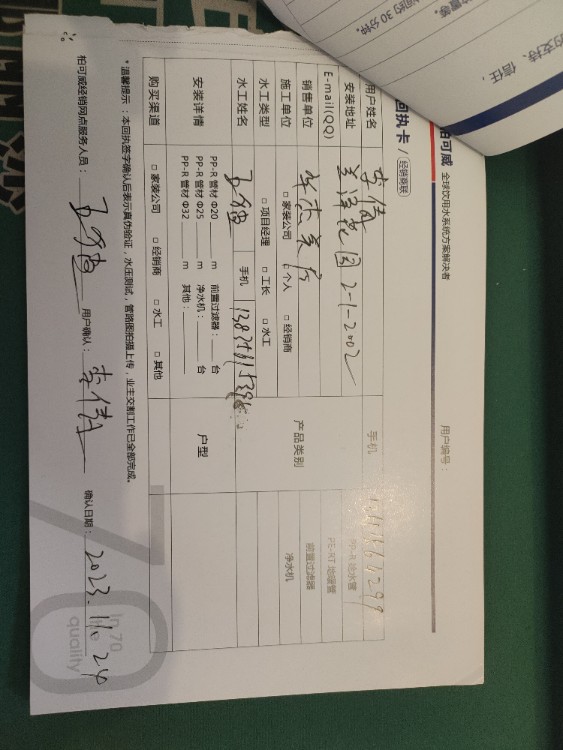 的支持、信任，
柏可威 全球饮用水系统方案解决者
回执卡 / 经销商联
用户编号：
用户姓名 李倩 手机
安装地址 兰泽花园 2-1-2002
E-mail(QQ)
销售单位 产品类别 PP-R 给水管
PE-RT 地暖管
前置过滤器
净水机
施工单位 □ 家装公司 □ 个人 □ 经销商
水工类型 □ 项目经理 □ 工长 □ 水工
水工姓名 手机
安装详情 PP-R 管材 Φ20 m 前置过滤器： 台 户型
PP-R 管材 Φ25 m 净水机： 台
PP-R 管材 Φ32 m 其他：
购买渠道 □ 家装公司 □ 经销商 □ 水工 □ 其他
*温馨提示：本回执签字确认后表示真伪验证，水压测试，管路图拍摄上传，业主交割工作已全部完成。
柏可威经销网点服务人员： 用户确认：李倩 确认日期：2023.11.24
in 70
quality